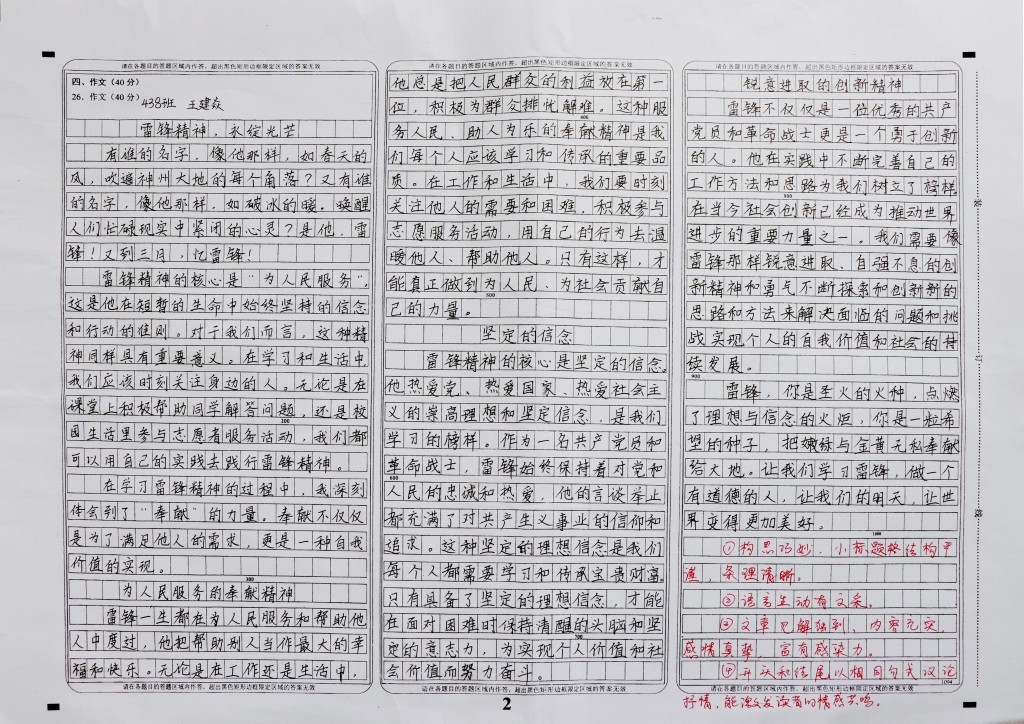 请在各题目的答题区域内作答，超出黑色矩形边框限定区域的答案无效
四、作文（40分）
26. 作文（40分）
438班 王建焱
雷锋精神，永绽光芒
有谁的名字，像他那样，如春天的
风，吹遍神州大地的每个角落？又有谁
的名字，像他那样，如破冰的暖，唤醒
人们忙碌现实中紧闭的心灵？是他，雷
锋！又到三月，忆雷锋！
雷锋精神的核心是“为人民服务”，
这是他在短暂的生命中始终坚持的信念
和行动的准则。对于我们而言，这种精
神同样具有重要意义。在学习和生活中，
我们应该时刻关注身边的人。无论是在
课堂上积极帮助同学解答问题，还是校
200
园生活里参与志愿者服务活动，我们都
可以用自己的实践去践行雷锋精神。
在学习雷锋精神的过程中，我深刻
体会到了“奉献”的力量。奉献不仅仅
是为了满足他人的需求，更是一种自我
价值的实现。
300
为人民服务的奉献精神
雷锋一生都在为人民服务和帮助他
人中度过，他把帮助别人当作最大的幸
福和快乐。无论是在工作还是生活中，
请在各题目的答题区域内作答，超出黑色矩形边框限定区域的答案无效
请在各题目的答题区域内作答，超出黑色矩形边框限定区域的答案无效
他总是把人民群众的利益放在第一
位，积极为群众排忧解难。这种服
400
务人民、助人为乐的奉献精神是我
们每个人应该学习和传承的重要品
质。在工作和生活中，我们要时刻
关注他人的需要和困难，积极参与
志愿服务活动，用自己的行为去温
暖他人、帮助他人。只有这样，才
能真正做到为人民、为社会贡献自
500
己的力量。
坚定的信念
雷锋精神的核心是坚定的信念。
他热爱党、热爱国家、热爱社会主
义的崇高理想和坚定信念，是我们
学习的榜样。作为一名共产党员和
革命战士，雷锋始终保持着对党和
600
人民的忠诚和热爱，他的言谈举止
都充满了对共产主义事业的信仰和
追求。这种坚定的理想信念是我们
每个人都需要学习和传承宝贵财富。
只有具备了坚定的理想信念，才能
在面对困难时保持清醒的头脑和坚
定的意志力，为实现个人价值和社
会价值而努力奋斗。
请在各题目的答题区域内作答，超出黑色矩形边框限定区域的答案无效
2
请在各题目的答题区域内作答，超出黑色矩形边框限定区域的答案无效
锐意进取的创新精神
雷锋不仅仅是一位优秀的共产
党员和革命战士更是一个勇于创新
的人。他在实践中不断完善自己的
工作方法和思路为我们树立了榜样
800
在当今社会创新已经成为推动世界
进步的重要力量之一。我们需要像
雷锋那样锐意进取、自强不息的创
新精神和勇气不断探索和创新新的
思路和方法来解决面临的问题和挑
战实现个人的自我价值和社会的持
续发展。
900
雷锋，你是圣火的火种，点燃
了理想与信念的火炬，你是一粒希
望的种子，把嫩绿与金黄无私奉献
给大地。让我们学习雷锋，做一个
有道德的人，让我们的明天，让世
界变得更加美好。
1000
①构思巧妙，小标题格结构严
谨，条理清晰。
②语言生动有文采。
③文章见解独到，内容充实，
感情真挚，富有感染力。
④开头和结尾以相同句式议论
1094
请在各题目的答题区域内作答，超出黑色矩形边框限定区域的答案无效
抒情，能激发读者的情感共鸣。
装
订
线